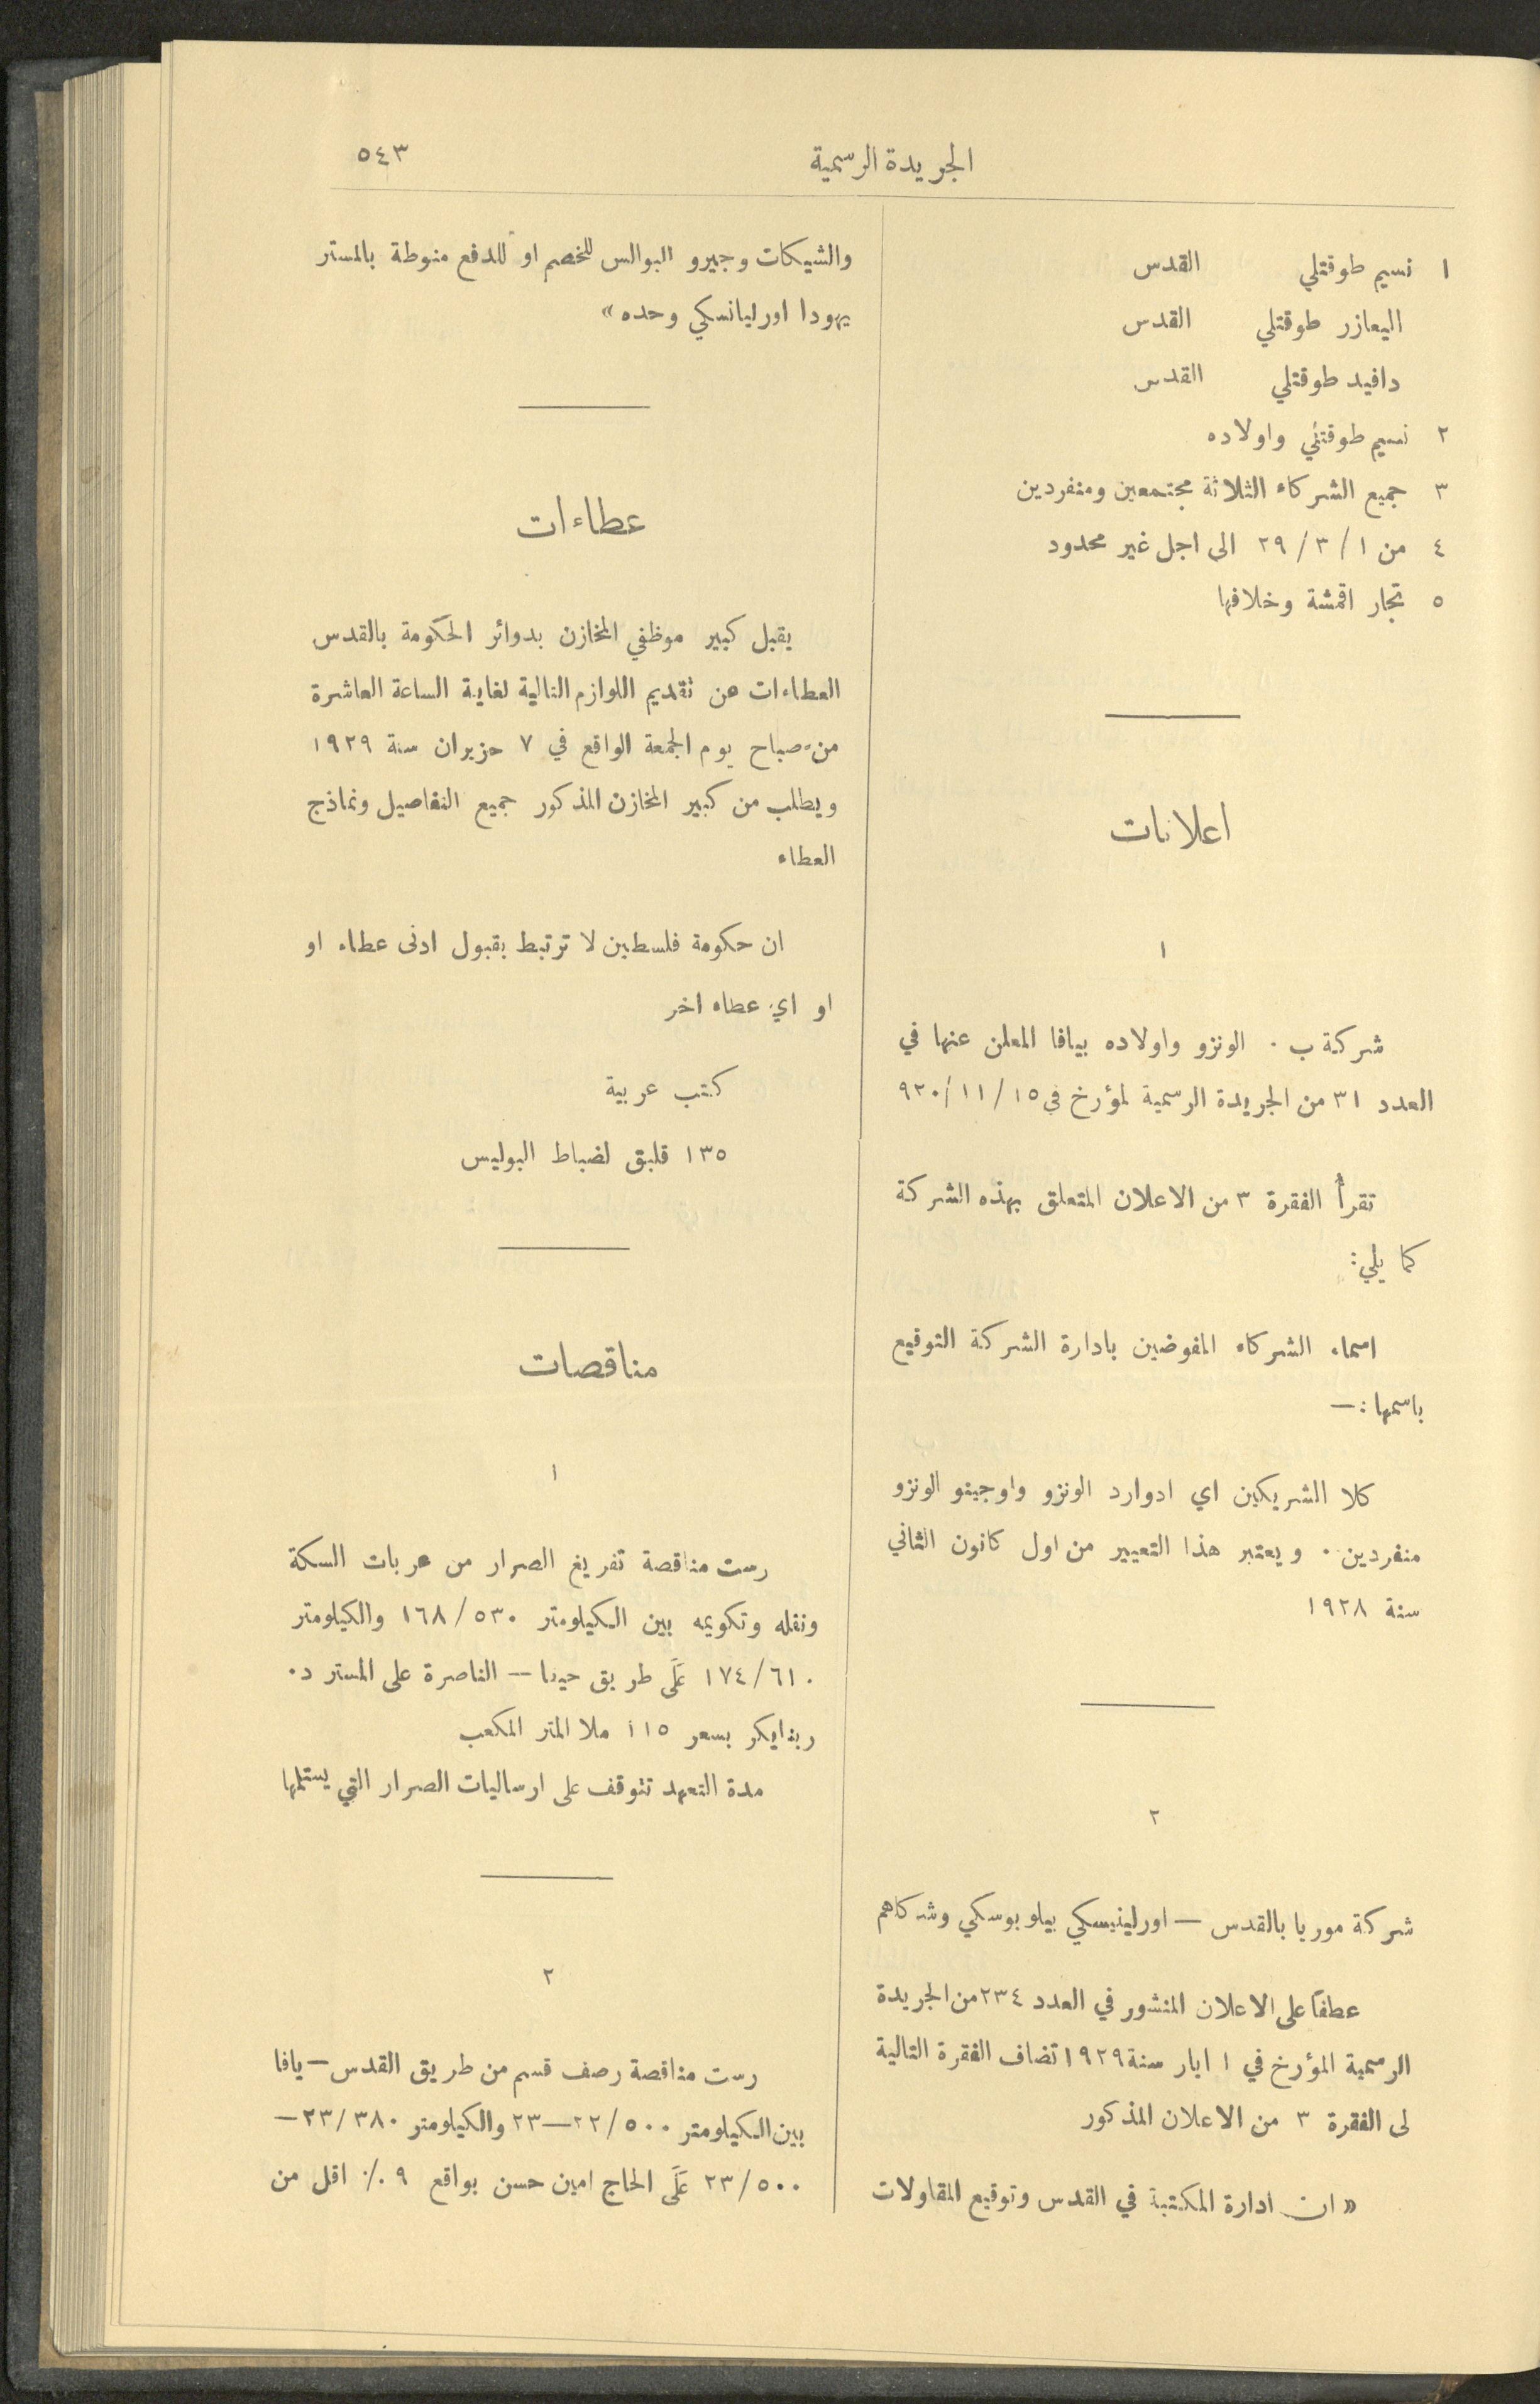 الجريدة الرسمية
٥٤٣
١ نسيم طوقتلي القدس
اليعازر طوقتلي القدس
دافيد طوقتلي القدس
٢ نسيم طوقتلي واولاده
٣ جميع الشركاء الثلاثة مجتمعين ومنفردين
٤ من ١ / ٣ / ٢٩ الى اجل غير محدود
٥ تجار اقمشة وخلافها
اعلانات
١
شركة ب . الونزو واولاده بيافا المعلن عنها في
العدد ٣١ من الجريدة الرسمية لمؤرخ في ١٥ / ١١ / ٩٢٠
تقرأ الفقرة ٣ من الاعلان المتعلق بهذه الشركة
كما يلي :
اسماء الشركاء المفوضين بادارة الشركة التوقيع
باسمها : —
كلا الشريكين اي ادوارد الونزو واوجينو الونزو
منفردين . ويعتبر هذا التعيير من اول كانون الثاني
سنة ١٩٢٨
٢
شركة موريا بالقدس — اورلينيسكي بيلوبوسكي وشركاهم
عطفاً على الاعلان المنشور في العدد ٢٣٤ من الجريدة
الرسمية المؤرخ في ١ ايار سنة ١٩٢٩ تضاف الفقرة التالية
لى الفقرة ٣ من الاعلان المذكور
« ان ادارة المكتبة في القدس وتوقيع المقاولات
والشيكات وجيرو البوالس للخصم او للدفع منوطة بالمستر
يهودا اورليانسكي وحده »
عطاءات
يقبل كبير موظفي المخازن بدوائر الحكومة بالقدس
العطاءات عن تقديم اللوازم التالية لغاية الساعة العاشرة
من صباح يوم الجمعة الواقع في ٧ حزيران سنة ١٩٢٩
ويطلب من كبير المخازن المذكور جميع التفاصيل ونماذج
العطاء
ان حكومة فلسطين لا ترتبط بقبول ادنى عطاء او
او اي عطاء اخر
كتب عربية
١٣٥ قلبق لضباط البوليس
مناقصات
١
رست مناقصة تفريغ الصرار من عربات السكة
ونقله وتكويمه بين الكيلومتر ١٦٨/٥٣٠ والكيلومتر
١٧٤/٦١٠ عَلَى طريق حيفا — الناصرة على المستر د .
بسعر ١١٥ ملا المتر المكعب
مدة التعهد تتوقف على ارساليات الصرار التي يستلمها
٢
رست مناقصة رصف قسم من طريق القدس — يافا
بين الكيلومتر ٢٢/٥٠٠ — ٢٣ والكيلومتر ٢٣/٣٨٠ —
٢٣/٥٠٠ عَلَى الحاج امين حسن بواقع ٩ ٪ اقل من